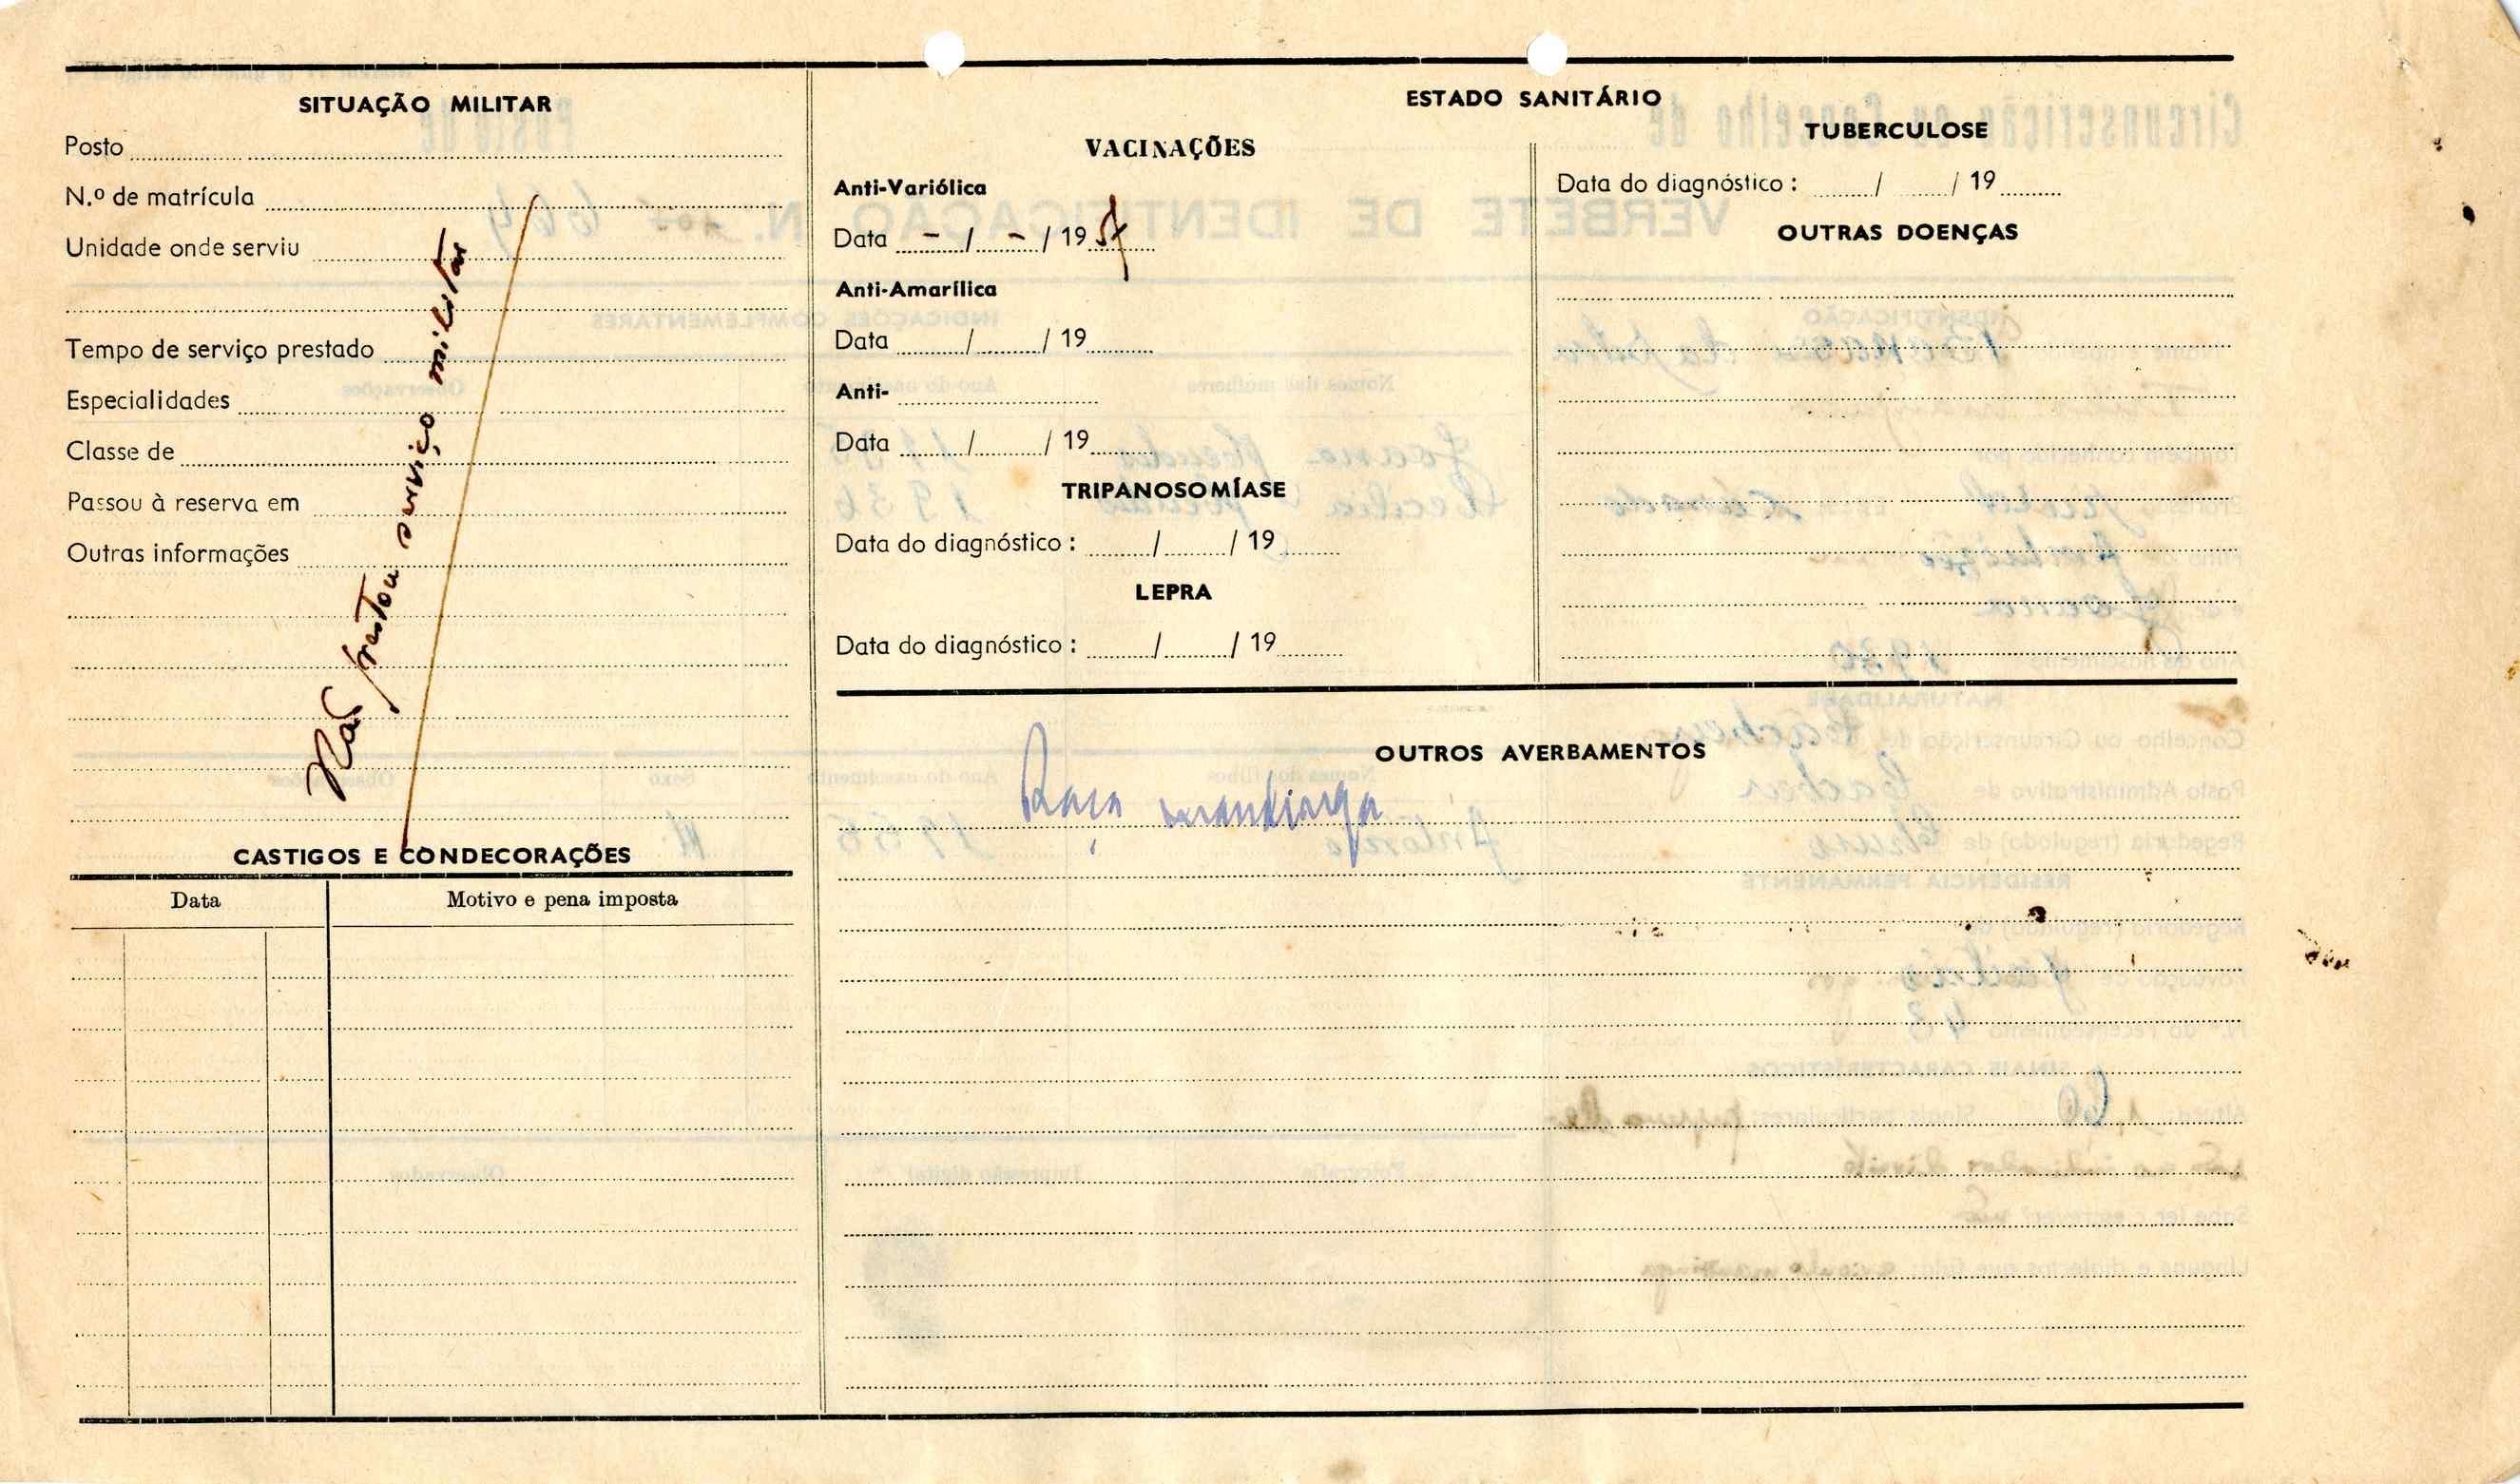 SITUAÇÃO MILITAR
Posto
N.º de matrícula
Unidade onde serviu
Tempo de serviço prestado
Especialidades
Classe de
Passou à reserva em
Outras informações
Não prestou serviço militar
CASTIGOS E CONDECORAÇÕES
Data Motivo e pena imposta
ESTADO SANITÁRIO
VACINAÇÕES
Anti-Variólica
Data - / - / 1954
Anti-Amarílica
Data / / 19
Anti-
Data / / 19
TRIPANOSOMÍASE
Data do diagnóstico : / / 19
LEPRA
Data do diagnóstico : / / 19
TUBERCULOSE
Data do diagnóstico : / / 19
OUTRAS DOENÇAS
OUTROS AVERBAMENTOS
Raça mandinga